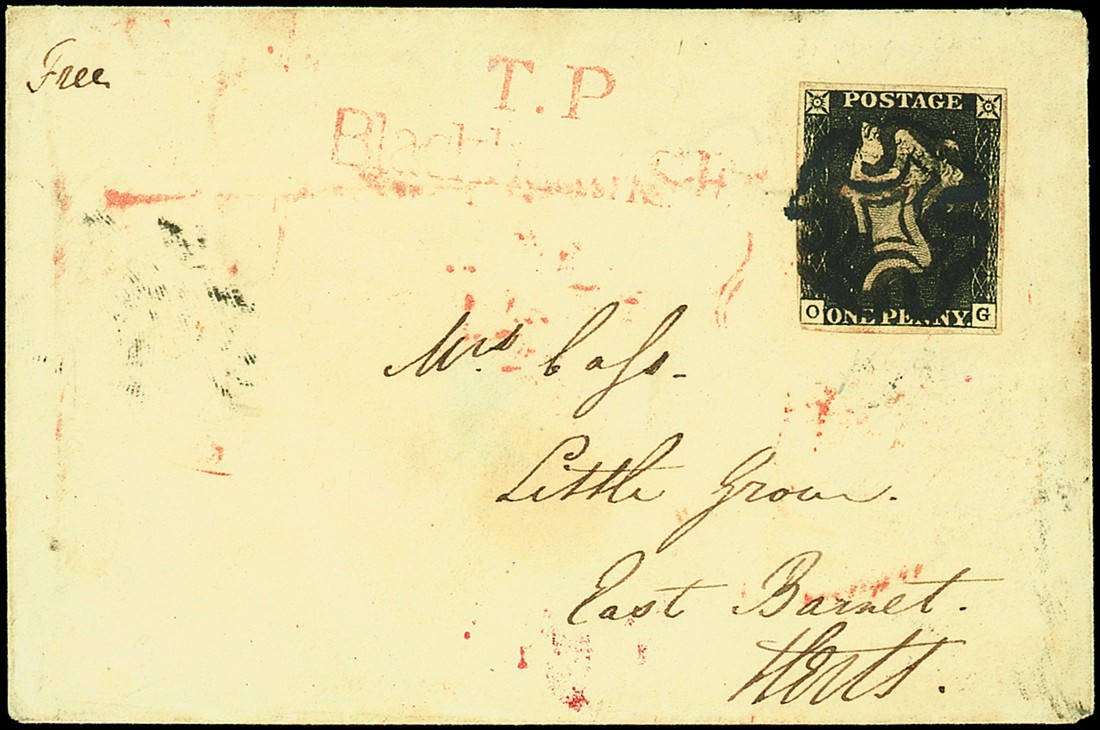 Free
T.P
POSTAGE
O ONE PENNY. G
Mrs. Cass.
Little Grove.
East Barnet.
Herts.